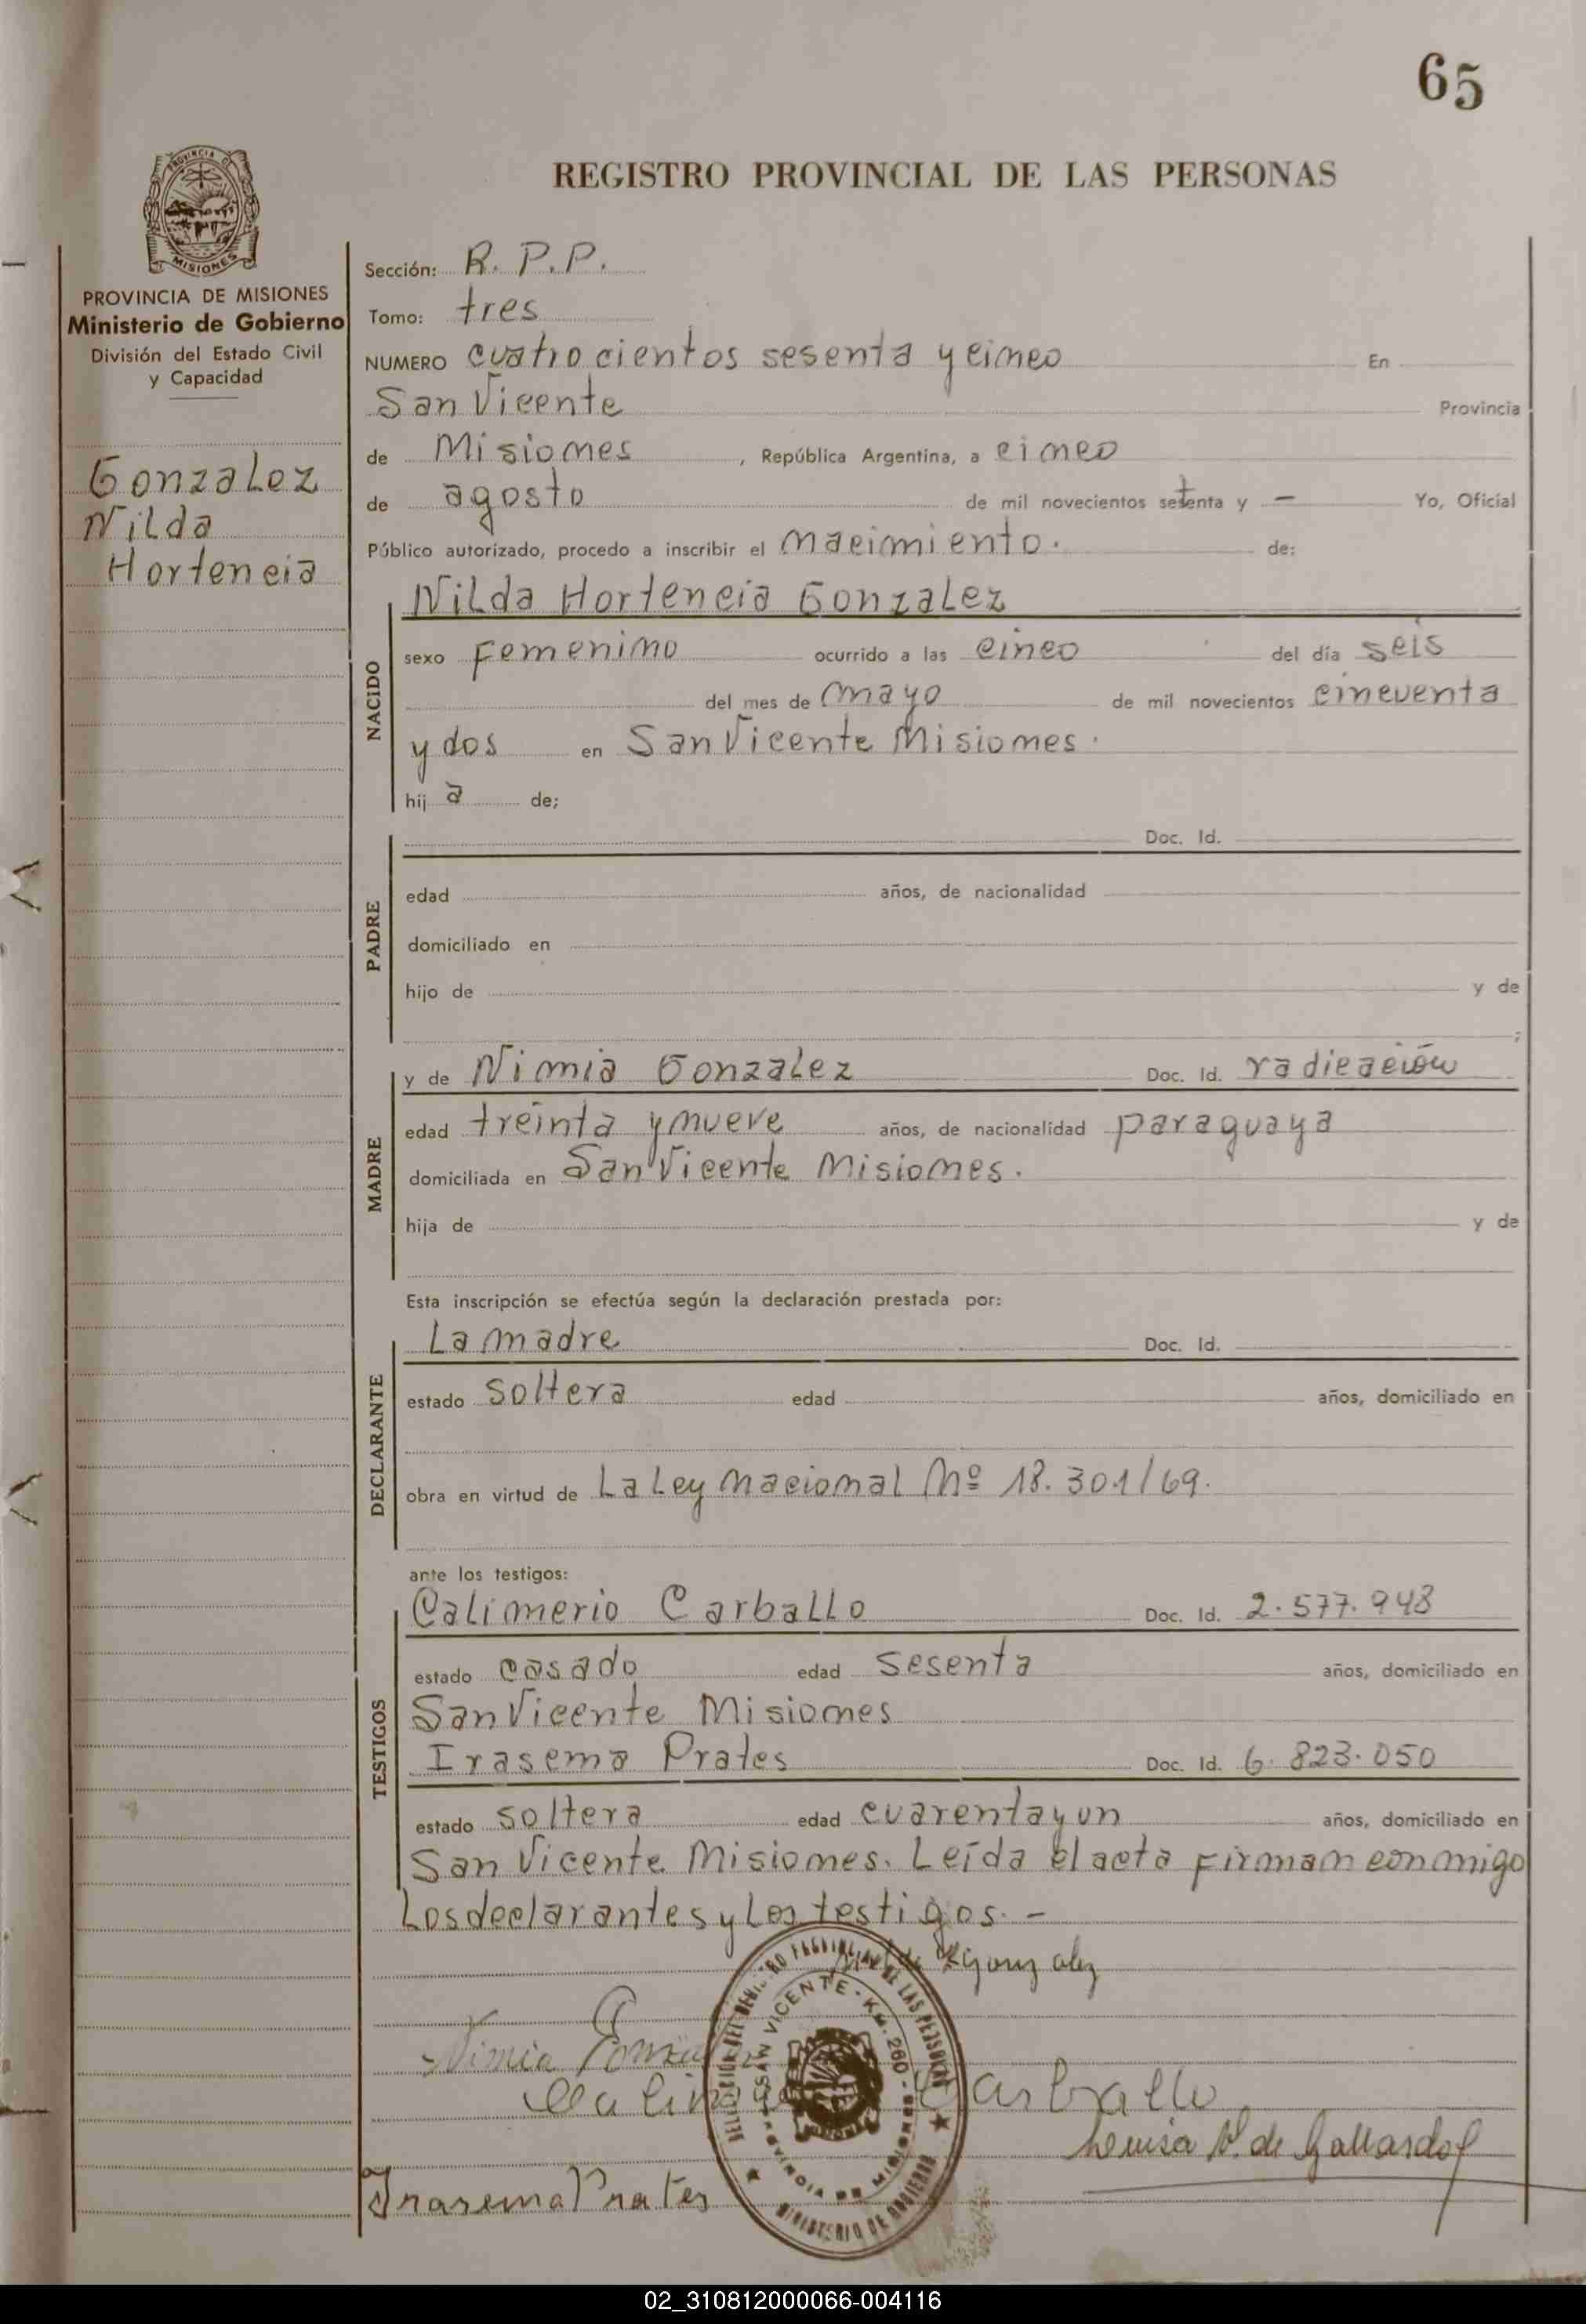 65
PROVINCIA DE
MISIONES
REGISTRO PROVINCIAL DE LAS PERSONAS
PROVINCIA DE MISIONES
Ministerio de Gobierno
División del Estado Civil
y Capacidad
Gonzalez
Nilda
Hortencia
Sección: R. P. P.
Tomo: tres
NUMERO cuatrocientos sesenta y cinco En
San Vicente Provincia
de Misiones, República Argentina, a cinco
de agosto de mil novecientos setenta y — Yo, Oficial
Público autorizado, procedo a inscribir el nacimiento. de:
NACIDO
Nilda Hortencia Gonzalez
sexo Femenino ocurrido a las cinco del día seis
del mes de mayo de mil novecientos cincuenta
y dos en San Vicente Misiones.
hij a de;
PADRE
Doc. Id.
edad años, de nacionalidad
domiciliado en
hijo de y de
;
MADRE
y de Nimia Gonzalez Doc. Id. radicación
edad treinta y nueve años, de nacionalidad paraguaya
domiciliada en San Vicente Misiones.
hija de y de
Esta inscripción se efectúa según la declaración prestada por:
DECLARANTE
La madre Doc. Id.
estado soltera edad años, domiciliado en
obra en virtud de La Ley Nacional Nº 18.301/69.
ante los testigos:
TESTIGOS
Calimerio Carballo Doc. Id. 2.577.948
estado casado edad sesenta años, domiciliado en
San Vicente Misiones
Irasema Prates Doc. Id. 6.823.050
estado soltera edad cuarenta y un años, domiciliado en
San Vicente Misiones. Leída el acta Firman conmigo
Los declarantes y Los testigos. —
Gonzalez
Nimia
Carballo
Luisa V. de Gallardo
Irasema Prates
SAN VICENTE - KM. 260 - MISIONES
PROVINCIA DE MISIONES
MINISTERIO DE GOBIERNO
02_310812000066-004116